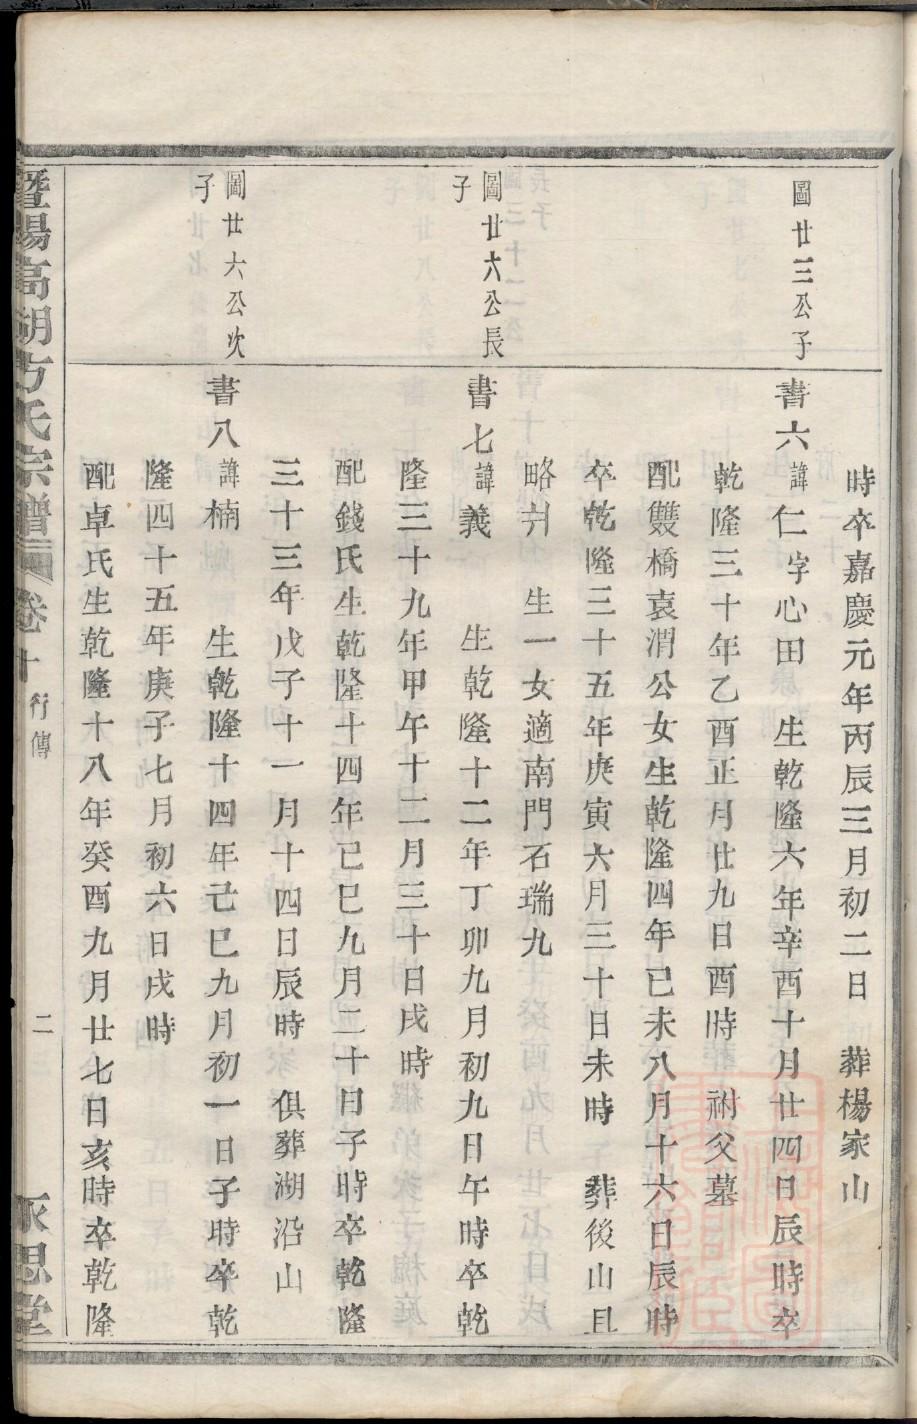 時卒嘉慶元年丙辰三月初二日　葬楊家山
圖廿三公子
書六諱仁字心田　生乾隆六年辛酉十月廿四日辰時卒
乾隆三十年乙酉正月廿九日酉時　祔父墓
配雙橋袁渭公女生乾隆四年已未八月十六日辰時
卒乾隆三十五年庚寅六月三十日未時　葬後山且
略爿　生一女適南門石瑞九
圖廿六公長
子
書七諱義　生乾隆十二年丁卯九月初九日午時卒乾
隆三十九年甲午十二月三十日戌時
配錢氏生乾隆十四年己巳九月二十日子時卒乾隆
三十三年戊子十一月十四日辰時　俱葬湖沿山
圖廿六公次
子
書八諱楠　生乾隆十四年己巳九月初一日子時卒乾
隆四十五年庚子七月初六日戌時
配卓氏生乾隆十八年癸酉九月廿七日亥時卒乾隆
暨陽高湖方氏宗譜　卷十　行傳　二　永思堂